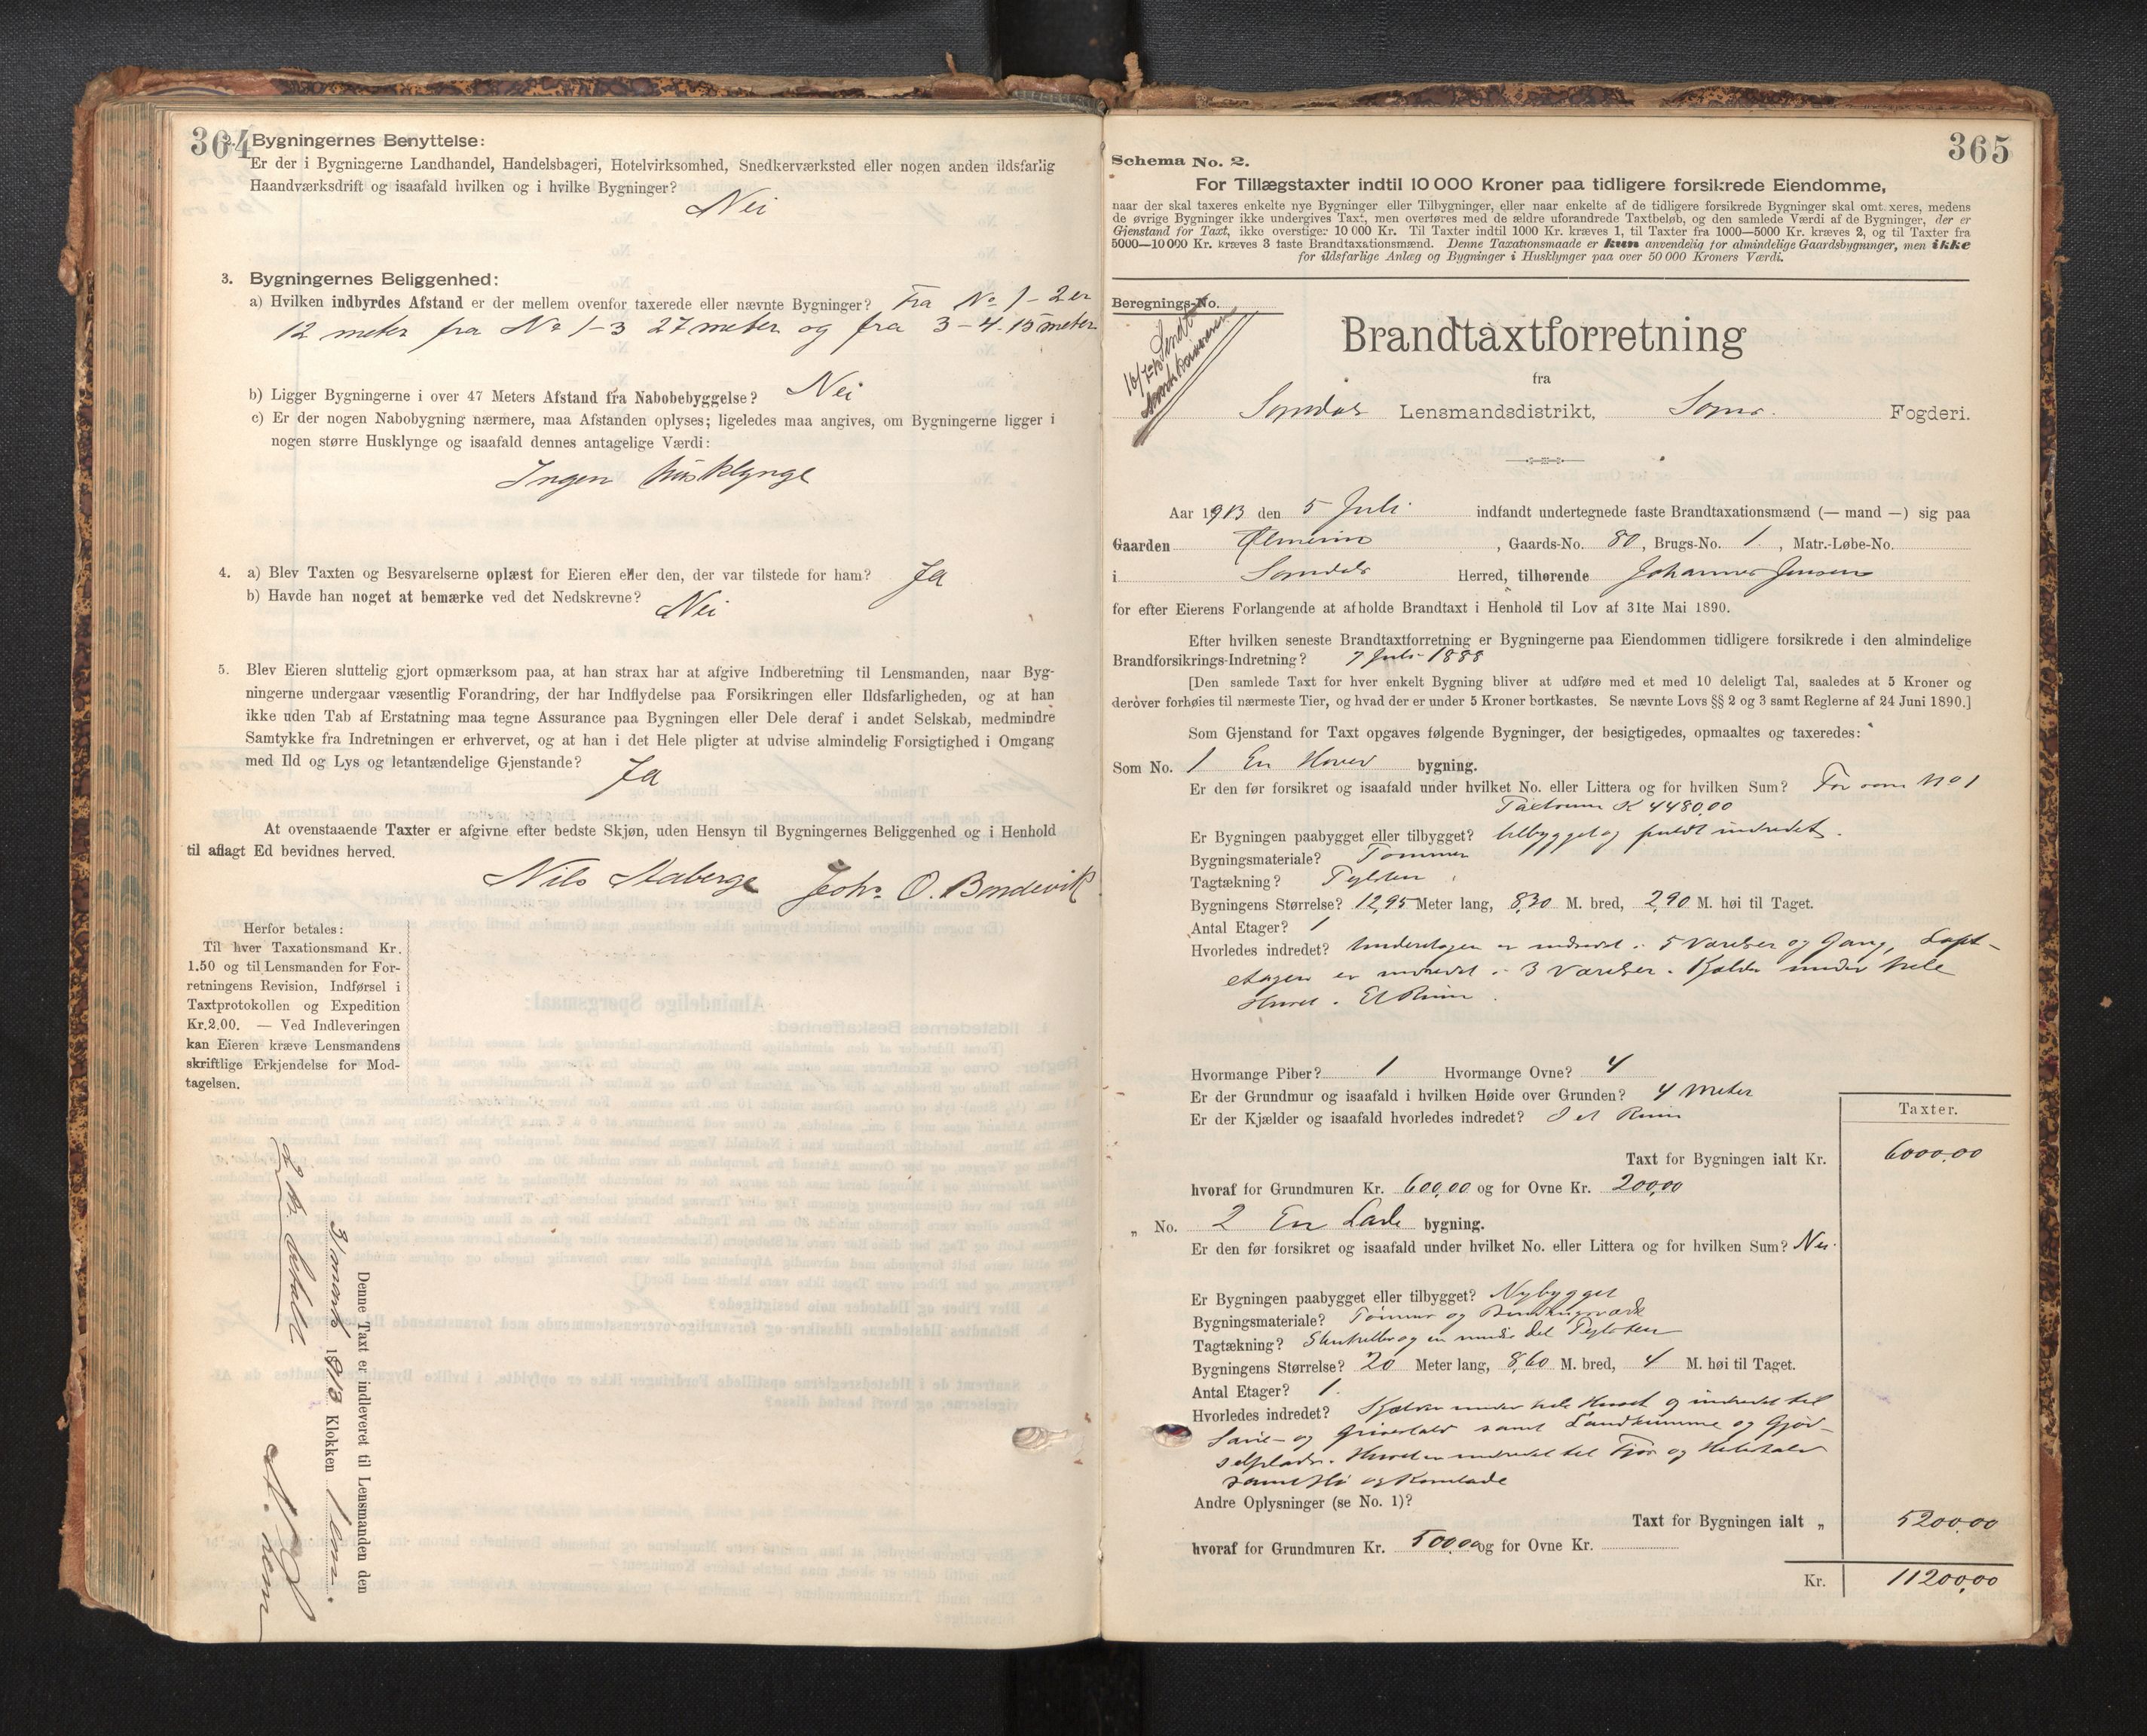 364
2. Bygningernes Benyttelse:
Er der i Bygningerne Landhandel, Handelsbageri, Hotelvirksomhed, Snedkerværksted eller nogen anden ildsfarlig
Haandværksdrift og isaafald hvilken og i hvilke Bygninger?
Nei
3. Bygningernes Beliggenhed:
a) Hvilken indbyrdes Afstand er der mellem ovenfor taxerede eller nævnte Bygninger? Fra No 1-2 er
12 meter fra No 1-3 27 meter og fra 3-4. 15 meter
b) Ligger Bygningerne i over 47 Meters Afstand fra Nabobebyggelse? Nei
c) Er der nogen Nabobygning nærmere, maa Afstanden oplyses; ligeledes maa angives, om Bygningerne ligger i
nogen større Husklynge og isaafald dennes antagelige Værdi:
Ingen husklynge
4. a) Blev Taxten og Besvarelserne oplæst for Eieren eller den, der var tilstede for ham? Ja
b) Havde han noget at bemærke ved det Nedskrevne? Nei
5. Blev Eieren sluttelig gjort opmærksom paa, at han strax har at afgive Indberetning til Lensmanden, naar Byg-
ningerne undergaar væsentlig Forandring, der har Indflydelse paa Forsikringen eller Ildsfarligheden, og at han
ikke uden Tab af Erstatning maa tegne Assurance paa Bygningen eller Dele deraf i andet Selskab, medmindre
Samtykke fra Indretningen er erhvervet, og at han i det Hele pligter at udvise almindelig Forsigtighed i Omgang
med Ild og Lys og letantændelige Gjenstande? Ja
At ovenstaaende Taxter er afgivne efter bedste Skjøn, uden Hensyn til Bygningernes Beliggenhed og i Henhold
til aflagt Ed bevidnes herved.
Nils Staberge Johs O. Bondevik
Herfor betales:
Til hver Taxationsmand Kr.
1.50 og til Lensmanden for For-
retningens Revision, Indførsel i
Taxtprotokollen og Expedition
Kr.2.00. — Ved Indleveringen
kan Eieren kræve Lensmandens
skriftlige Erkjendelse for Mod-
tagelsen.
Denne Taxt er indleveret til Lensmanden den
1913 Klokken 1
2 Kr betalt
365
Schema No. 2.
For Tillægstaxter indtil 10 000 Kroner paa tidligere forsikrede Eiendomme,
naar der skal taxeres enkelte nye Bygninger eller Tilbygninger, eller naar enkelte af de tidligere forsikrede Bygninger skal omtaxeres, medens
de øvrige Bygninger ikke undergives Taxt, men overføres med de ældre uforandrede Taxtbeløb, og den samlede Værdi af de Bygninger, der er
Gjenstand for Taxt, ikke overstiger 10 000 Kr. Til Taxter indtil 1000 Kr. kræves 1, til Taxter fra 1000—5000 Kr. kræves 2, og til Taxter fra
5000—10 000 Kr. kræves 3 faste Brandtaxationsmænd. Denne Taxationsmaade er kun anvendelig for almindelige Gaardsbygninger, men ikke
for ildsfarlige Anlæg og Bygninger i Husklynger paa over 50 000 Kroners Værdi.
Beregnings-No.
16/7-13 Sendt
Brandtaxtforretning
fra
Sogndals Lensmandsdistrikt, Sogns Fogderi.
Aar 1913 den 5 Juli indfandt undertegnede faste Brandtaxationsmænd (— mand —) sig paa
Gaarden , Gaards-No. 80, Brugs-No. 1. , Matr.-Løbe-No.
i Sogndals Herred, tilhørende Johannes Jensen
for efter Eierens Forlangende at afholde Brandtaxt i Henhold til Lov af 31te Mai 1890.
Efter hvilken seneste Brandtaxtforretning er Bygningerne paa Eiendommen tidligere forsikrede i den almindelige
Brandforsikrings-Indretning? 7 Juli 1888
[Den samlede Taxt for hver enkelt Bygning bliver at udføre med et med 10 deleligt Tal, saaledes at 5 Kroner og
derover forhøies til nærmeste Tier, og hvad der er under 5 Kroner bortkastes. Se nævnte Lovs §§ 2 og 3 samt Reglerne af 24 Juni 1890.]
Som Gjenstand for Taxt opgaves følgende Bygninger, der besigtigedes, opmaaltes og taxeredes:
Som No. 1 En Hoved bygning.
Er den før forsikret og isaafald under hvilket No. eller Littera og for hvilken Sum? Før som No 1
Taxtsum K 4480,00
Er Bygningen paabygget eller tilbygget? tilbygget og fuldt indredet.
Bygningsmateriale? Tømmer
Tagtækning? Teglsten
Bygningens Størrelse? 12,95 Meter lang, 8,30 M. bred, 2,90 M. høi til Taget.
Antal Etager? 1
Hvorledes indredet? Underetagen er indredet i 5 Værelser og Gang, Loft-
etagen er indredet i 3 Værelser. Kjelder under hele
Huset. Et Rum.
Hvormange Piber? 1 Hvormange Ovne? 4
Er der Grundmur og isaafald i hvilken Høide over Grunden? 4 Meter
Er der Kjælder og isaafald hvorledes indredet? I et Rum
Taxter.
Taxt for Bygningen ialt Kr. 6000,00
hvoraf for Grundmuren Kr. 600,00 og for Ovne Kr. 200,00
„ No. 2 En Lade bygning.
Er den før forsikret og isaafald under hvilket No. eller Littera og for hvilken Sum? Nei.
Er Bygningen paabygget eller tilbygget? Nybygget
Bygningsmateriale? Tømmer og Bindingsværk
Tagtækning? Stenheller og en mindre del Teglsten
Bygningens Størrelse? 20 Meter lang, 8,60 M. bred, 4 M. høi til Taget.
Antal Etager? 1.
Hvorledes indredet? Kjelder under hele Huset og indredet til
Saue- og Grisestald samt Landkumme og Gjød-
selplads. Huset er indredet til Fjøs og Hestestald
samt Hø og Kornlade
Andre Oplysninger (se No. 1)?
Taxt for Bygningen ialt „ 5200,00
hvoraf for Grundmuren Kr. 500,00 og for Ovne Kr.
Kr. 11200,00